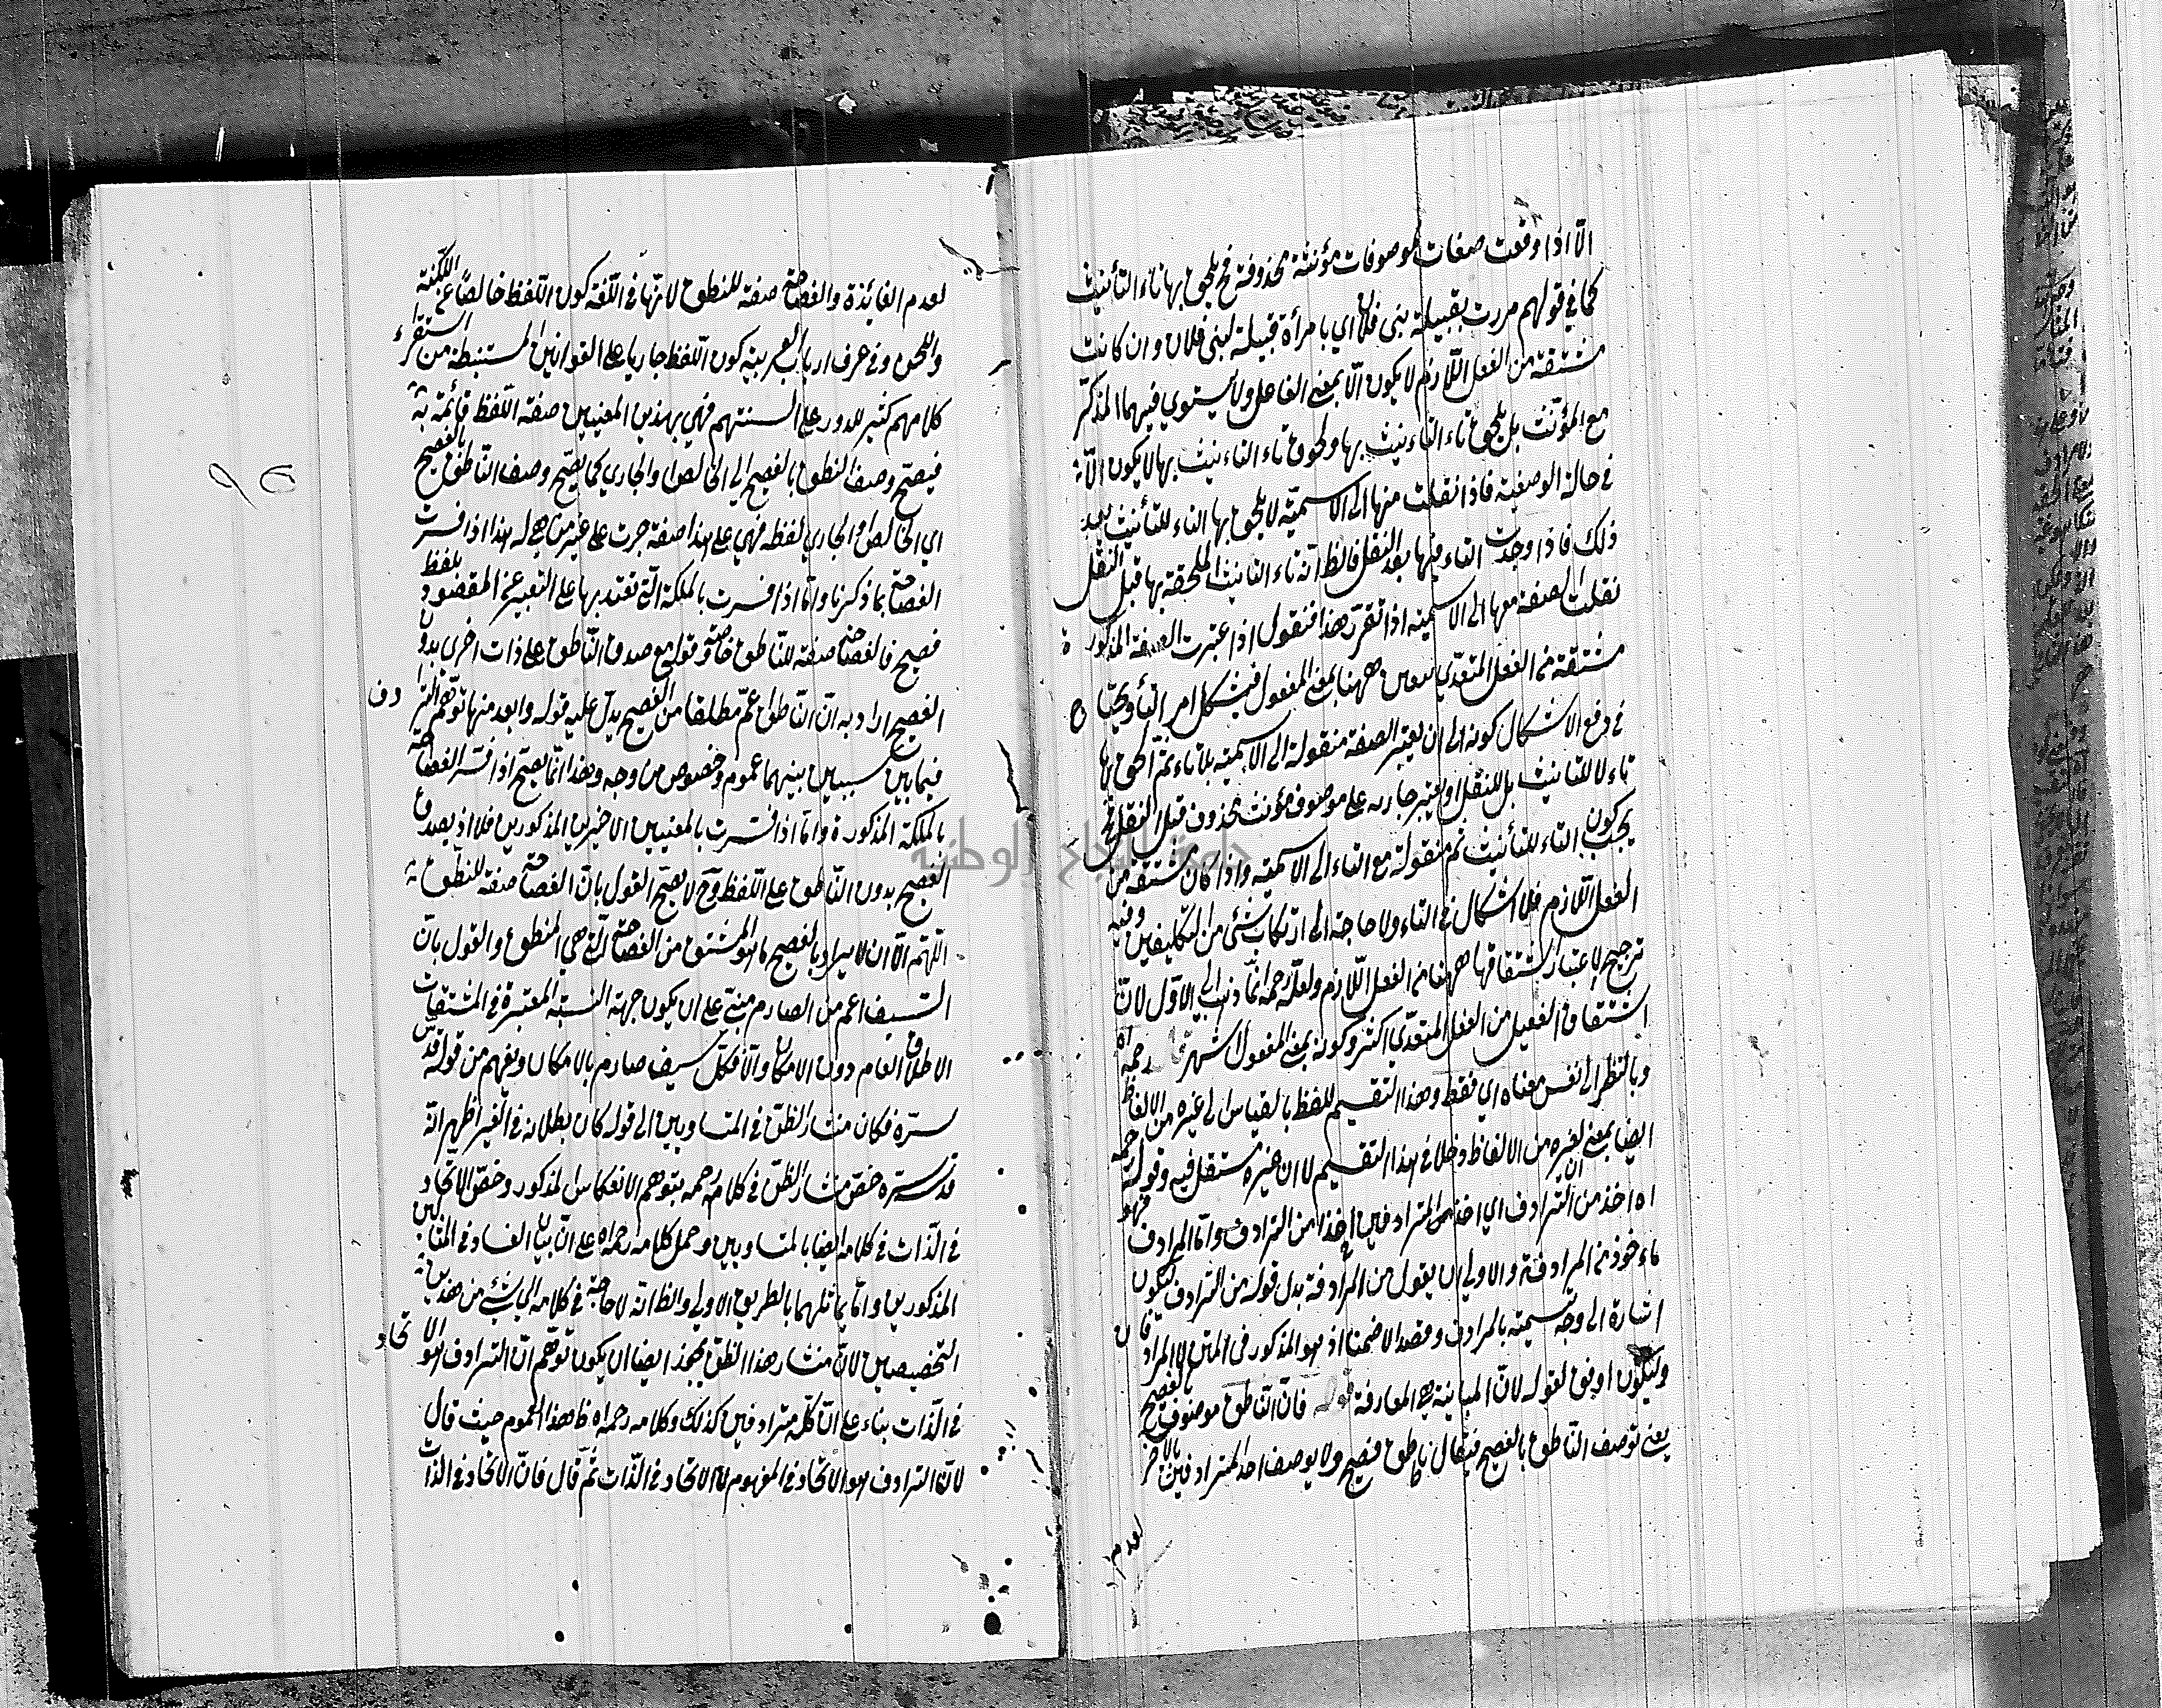 الّا اذا وقعت صفات لموصوفات مؤنثة محذوفة فح يلحق بها تاء التأنيث
كما في قولهم مررت بقبيلة بنى فلان اي بامرأة قبيلة لبنى فلان وان كانت
مشتقة من الفعل اللازم لا يكون الّا بمعنى الفاعل ولا يستوي فيهما المذكر
مع المؤنث بل يلحق تاء التاءنيث بها ولحوق تاء التاءنيث بها لا يكون الّا
في حالة الوصفية فاذا نقلت منها الى الاسميّة لا يلحق بها التاء للتأنيث بعد
ذلك فاذا وجدت التاء فيها بعد النقل فالظ انه تاء التانيث الملحقة بها قبل النقل
نقلت الصفة معها الى الاسمية اذا تقرر هذا فنقول اذا عتبرت الصفة المذكورة
مشتقة من الفعل المتعدّي ههنا بمعنى المفعول فيشكل امر التأ ويحتاج
في دفع الاشكال كونه الى ان يعتبر الصفة منقولة الى الاسمية بلا تاء ثمّ الحق بها
تاء لا للتانيث بل للنقل او يعتبر جارية على موصوف مؤنث محذوف قبل النقل فح
يجب كون التاء للتأنيث ثم منقولة مع التاء الى الاسمية واذا كان مشتقة من
الفعل اللازم فلا اشكال في التاء ولا حاجة الى ارتكاب شئ من التكليفين وفيه
ترجيح لاعتبار اشتقاقها ههنا من الفعل اللازم ولعله رحمه انما ذهب الى الاول لان
اشتقاق الفعيل من الفعل المتعدّي اكثر وكونه بمعنى المفعول اشهر رحمه اه
وبالنظر الى نفس معناه اي فقط وهذا التقسيم للفظ بالقياس الى غيره من الالفاظ
ايضا بمعنى لغيره من الالفاظ دخلا في هذا التقسيم لا ان غيره مستقل فيه وقوله رحمه
اه اخذ من الترادف اي اخذ المترادفين اخذا من الترادف واما المرادف فهو
ماءخوذ من المرادفة والاولى ان يقول من المرادفة بدل قوله من الترادف ليكون
اشارة الى وجه تسميته بالمرادف وقصد الاضمنا اذ هو المذكور في المتن لا المترادفان
وليكون اوفق لقوله لان المباينة هي المفارقة قوله فان الناطق موصوف بالفصيح
يعنى توصف الناطق بالفصيح فيقال ناطق فصيح ولا يوصف احد المترادفين بالاخر
لعدم
لعدم الفائدة والفصاحة صفة للنطق لانها في اللغة كون اللفظ خالصا عن اللكنة
واللحن وفي عرف ارباب العربية كون اللفظ جاريا على القوانين المستنبطة من استقراء
كلامهم كثير الدور على السنتهم فهي بهذين المعنيين صفة اللفظ قائمة به
فيصحّ وصف النطق بالفصيح اي الخالص او الجاري كما يصحّ وصف الناطق بالفصيح
اي الخالص او الجاري لفظه فهي على هذا صفة جرت على غير من هي له هذا اذا فسرت
الفصاحة بما ذكرنا واما اذا فسرت بالملكة التي تقتدر بها على التعبير عن المقصود بلفظ
فصيح فالفصاحة صفة للناطق خاصة وقوله مع صدق الناطق على ذات اخرى بدون
الفصيح اراد به ان الناطق اعمّ مطلقا من الفصيح يدل عليه قوله وابعد منها توهم الترادف
فيما بين شيئين بينهما عموم وخصوص من وجه وهذا انما يصح اذا فسّر الفصاحة
بالملكة المذكورة واما اذا فسّرت بالمعنيين الاخيرين المذكورين فلا اذ يصدق
الفصيح بدون الناطق على اللفظ وح لا يصح القول بان الفصاحة صفة للنطق
اللهم الا ان لا يراد بالفصيح ما هو المشتق من الفصاحة التي هي المنطق والقول بان
السيف اعم من الصارم مبنيّ على ان يكون جهة النسبة المعتبرة في المشتقات
الاطلاق العام دون الامكان والّا فكل سيف صارم بالامكان ويفهم من قوله قدّس
سرّه فكان منشاء الظن في المتساويين الى قوله كان بطلانه في الغير اظهر انه
قدسسره خصّ منشاء الظن في كلامه رحمه بتوهم الانعكاس المذكور وخصّ الاتحاد
في الذات في كلامه ايضا بالمتساويين وحمل كلامه رحمه اه على ان بيان الفساد في المتباينين
المذكورين وامّا يماثلهما بالطريق الاولى والظ انه لا حاجة في كلامه الى شئ من هذين
التخصيصين لان منشاء هذا الظن يجوز ايضا ان يكون توهّم ان الترادف هو الاتحاد
في الذات بناء على ان كلّ مترادفين كذلك وكلامه رحمه اه ظ هذا العموم حيث قال
لان الترادف هو الاتحاد في المفهوم لا الاتحاد في الذات ثمّ قال فان الاتحاد في الذات
جامعة النجاح الوطنية